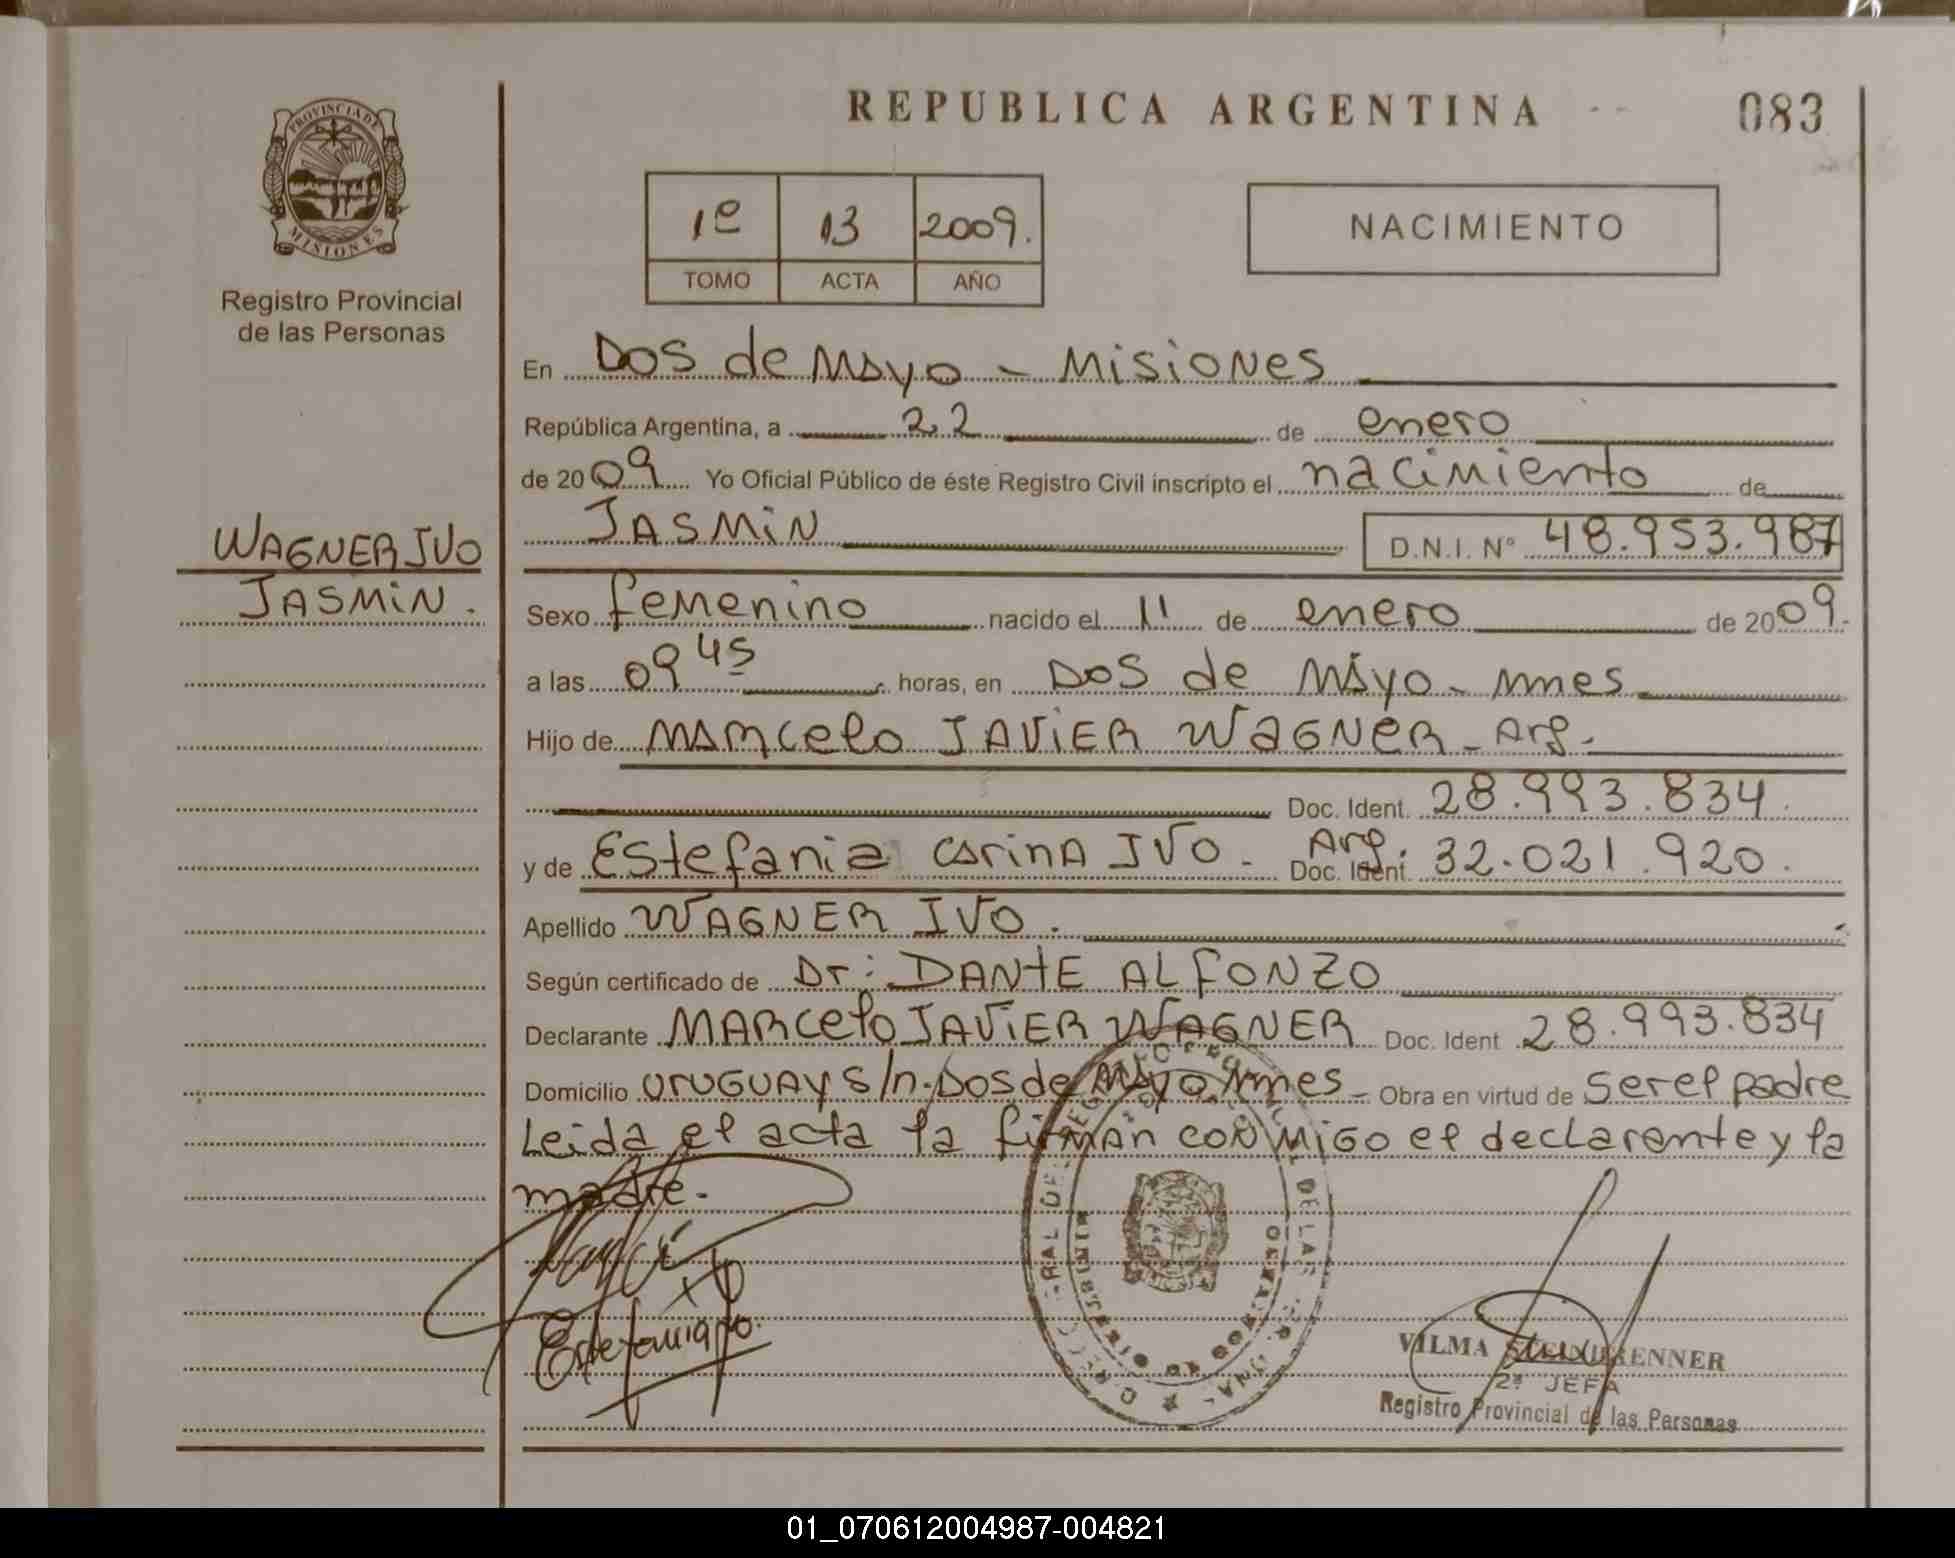 REPUBLICA ARGENTINA
083
PROVINCIA DE
MISIONES
Registro Provincial
de las Personas
1º 13 2009.
TOMO ACTA AÑO
NACIMIENTO
En Dos de Mayo - Misiones
República Argentina, a 22 de enero
de 2009 Yo Oficial Público de éste Registro Civil inscripto el nacimiento de
JASMiN D.N.I. Nº 48.953.987
WAGNER IVO
JASMiN.
Sexo femenino nacido el 11 de enero de 2009.
a las 09 45 horas, en Dos de Mayo - Mnes
Hijo de Marcelo JAViER WAGNER - Arg.
Doc. Ident. 28.993.834.
y de Estefania Carina IVO - Arg. Doc. Ident. 32.021.920.
Apellido WAGNER IVO.
Según certificado de Dr: DANtE ALFONZO
Declarante MARcelo JAViER WAGNER Doc. Ident 28.993.834
Domicilio URUGUAY S/n. Dos de Mayo Mnes - Obra en virtud de ser el padre
Leida el acta la firman conmigo el declarante y la
madre.
VILMA STEINBRENNER
2ª JEFA
Registro Provincial de las Personas
01_070612004987-004821